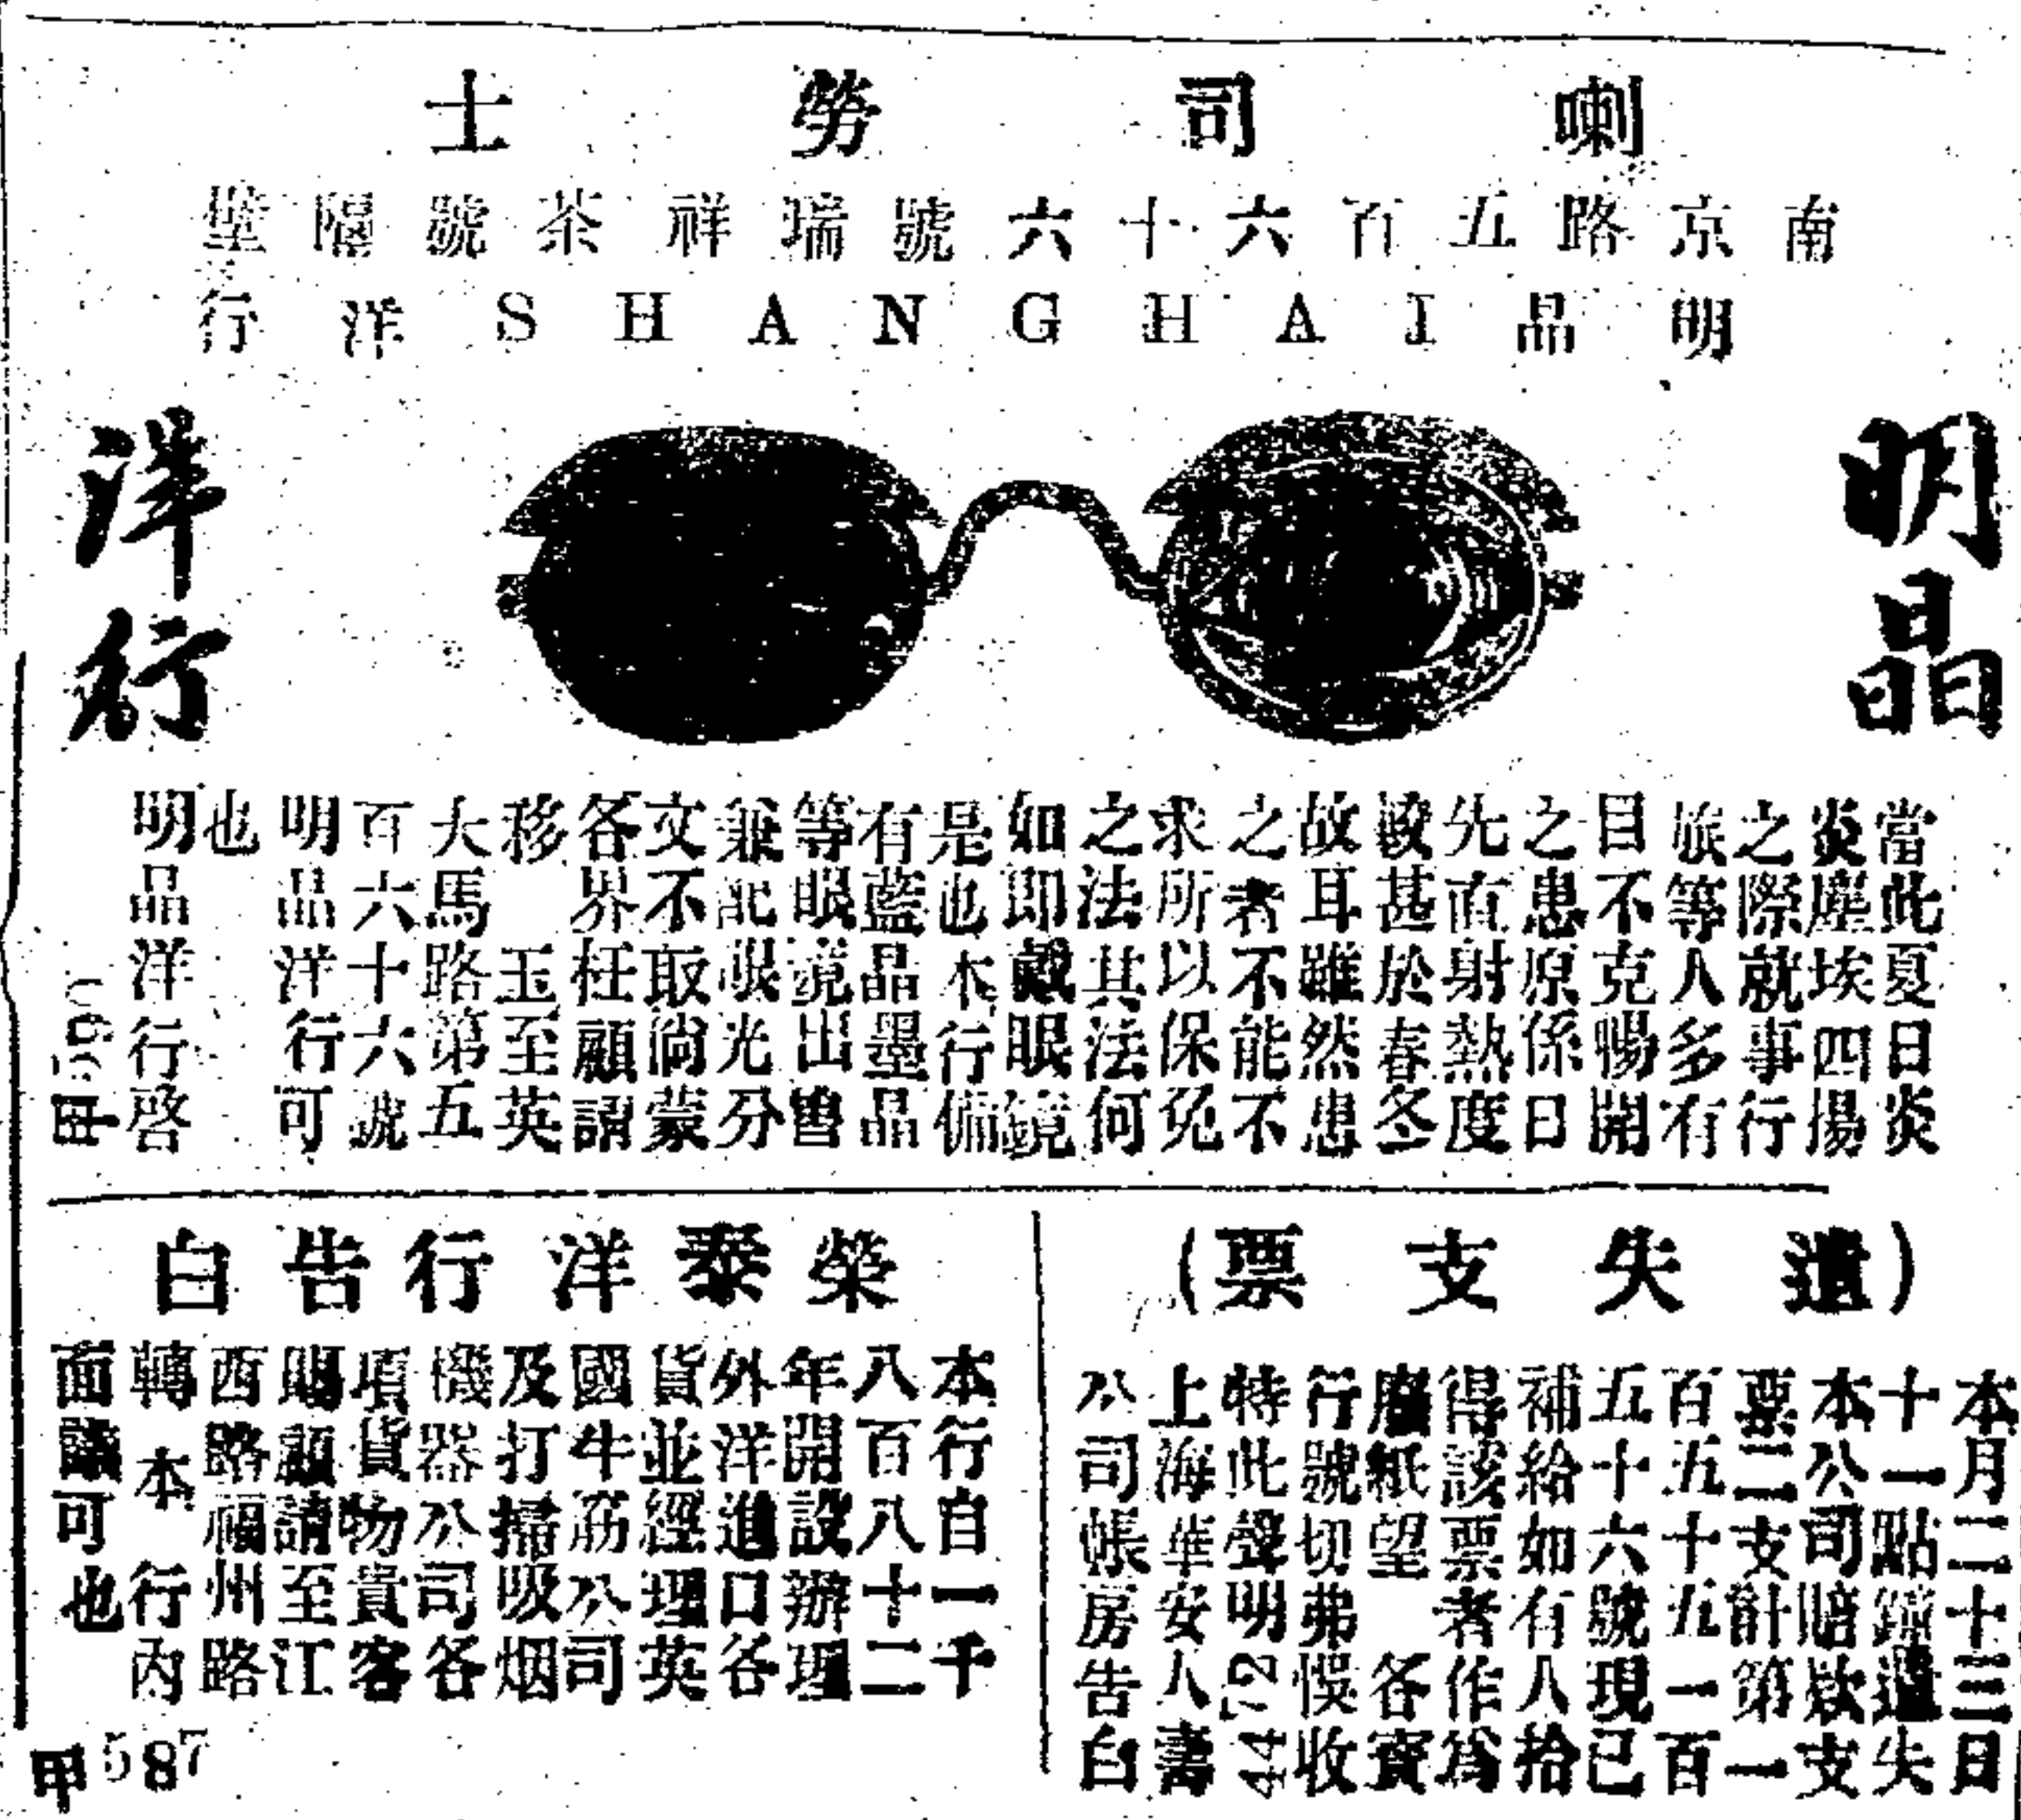 喇司勞士
南京路五百六十六號瑞祥茶號隔壁
明晶SHANGHAI洋行
明晶
洋行
當此夏日炎
炎塵埃四揚
之際就事行
旅等人多有
目不克暢開
之患原係日
先直射熱度
較甚於春冬
故耳雖然患
之者不能不
求所以保免
之法其法何
如即戴眼鏡
是也本行備
有藍晶墨晶
等眼鏡出售
兼配眼光分
文不取倘蒙
各界枉顧請
移玉至英
大馬路第五
百六十六號
明晶洋行可
也
明晶洋行啓
甲
(遺失支票)
本月二十三日
十一點鐘遺失
本公司賠欵支
票二支計第一
百五十五一百
五十六號現已
補給如有人拾
得該票者作爲
廢紙望各寳
行號切弗悞收
特此聲明4472
上海華安人壽
公司帳房告白
榮泰洋行告白
本行自一千
八百八十二
年開設辦理
外洋進口各
貨並經理英
國牛筋公司
及打掃吸烟
機器公司各
項貨物貴客
賜顧請至江
西路福州路
轉本行內
面議可也
甲587